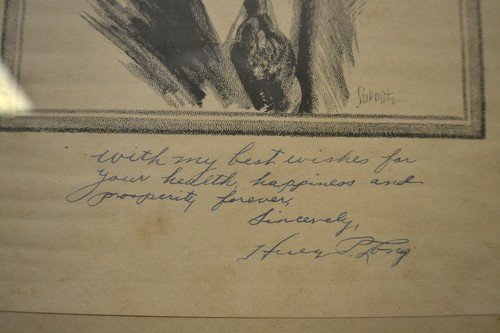 with my best wishes for
your health, happiness and
prosperity forever,
Sincerely,
Huey P. Long